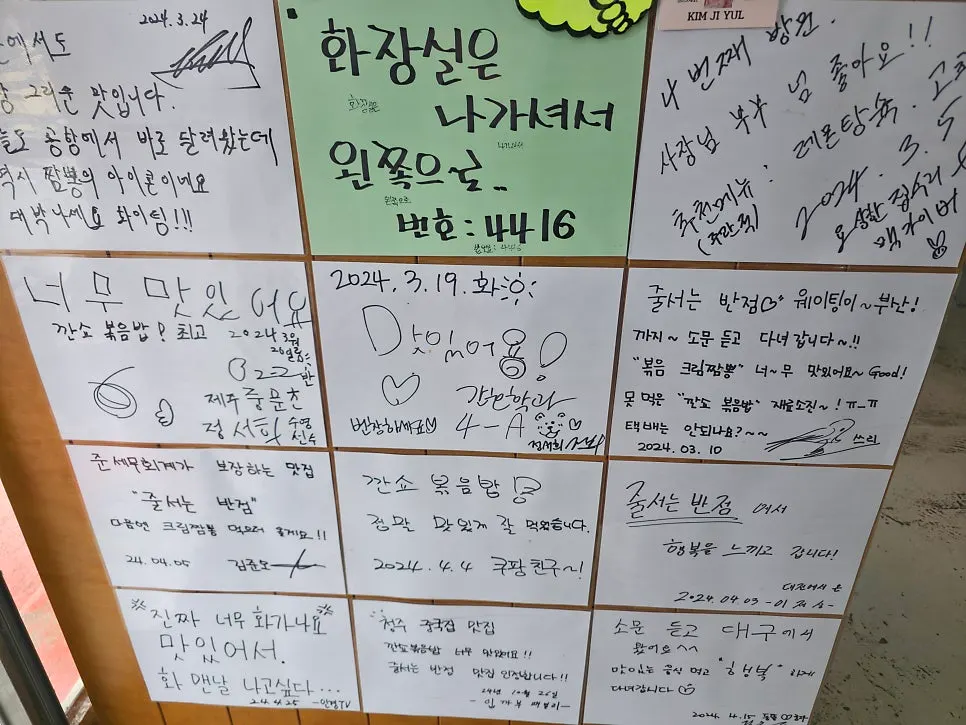 2024.3.24
에서도
그리운 맛입니다.
공항에서 바로 달려왔는데
역시 짬뽕의 아이콘이네요
대박나세요 화이팅!!!
화장실은
화장실은
나가셔서
나가셔서
왼쪽으로..
왼쪽으로
번호:4416
번호: 4416
KIM JI YUL
4번째 방문.
사장님 부부 넘 좋아요!!
추천메뉴: 레몬탕슉.
(주관적)
2024. 3. 5
요상한 접시리
맥가이버
너무 맛있어요
깐쇼 볶음밥! 최고
2024 3월
제주 중문초
정서희
2024.3.19.화
맛있어용!
간호학과
번창하세요♡ 4-A
줄서는 반점♡ 웨이팅이~ 부산!
까지~ 소문 듣고 다녀갑니다~!!
"볶음 크림짬뽕" 너~무 맛있어요~Good!
못 먹은 "깐쇼 볶음밥" 재료소진~! ㅠ_ㅠ
택배는 안되나요?~~
2024.03.10
쓰리
준세무회계가 보장하는 맛집
"줄서는 반점"
다음엔 크림짬뽕 먹으러 올게요!!
24.04.05 김준모
깐쇼 볶음밥
정말 맛있게 잘 먹었습니다.
2024.4.4 쿠팡친구~!
줄서는 반점 에서
행복을 느끼고 갑니다!
대전에서 온
2024.04.03
진짜 너무 화가나요
맛있어서.
화 맨날 나고싶다...
24.4.25
청주 중국집 맛집
깐쇼볶음밥 너무 맛있어요!!
줄서는 반점 맛집 인정합니다!!
24년 10월 26일
소문 듣고 대구에서
왔어요^^
맛있는 음식 먹고 "행복"하게
다녀갑니다♡
2024.4.15